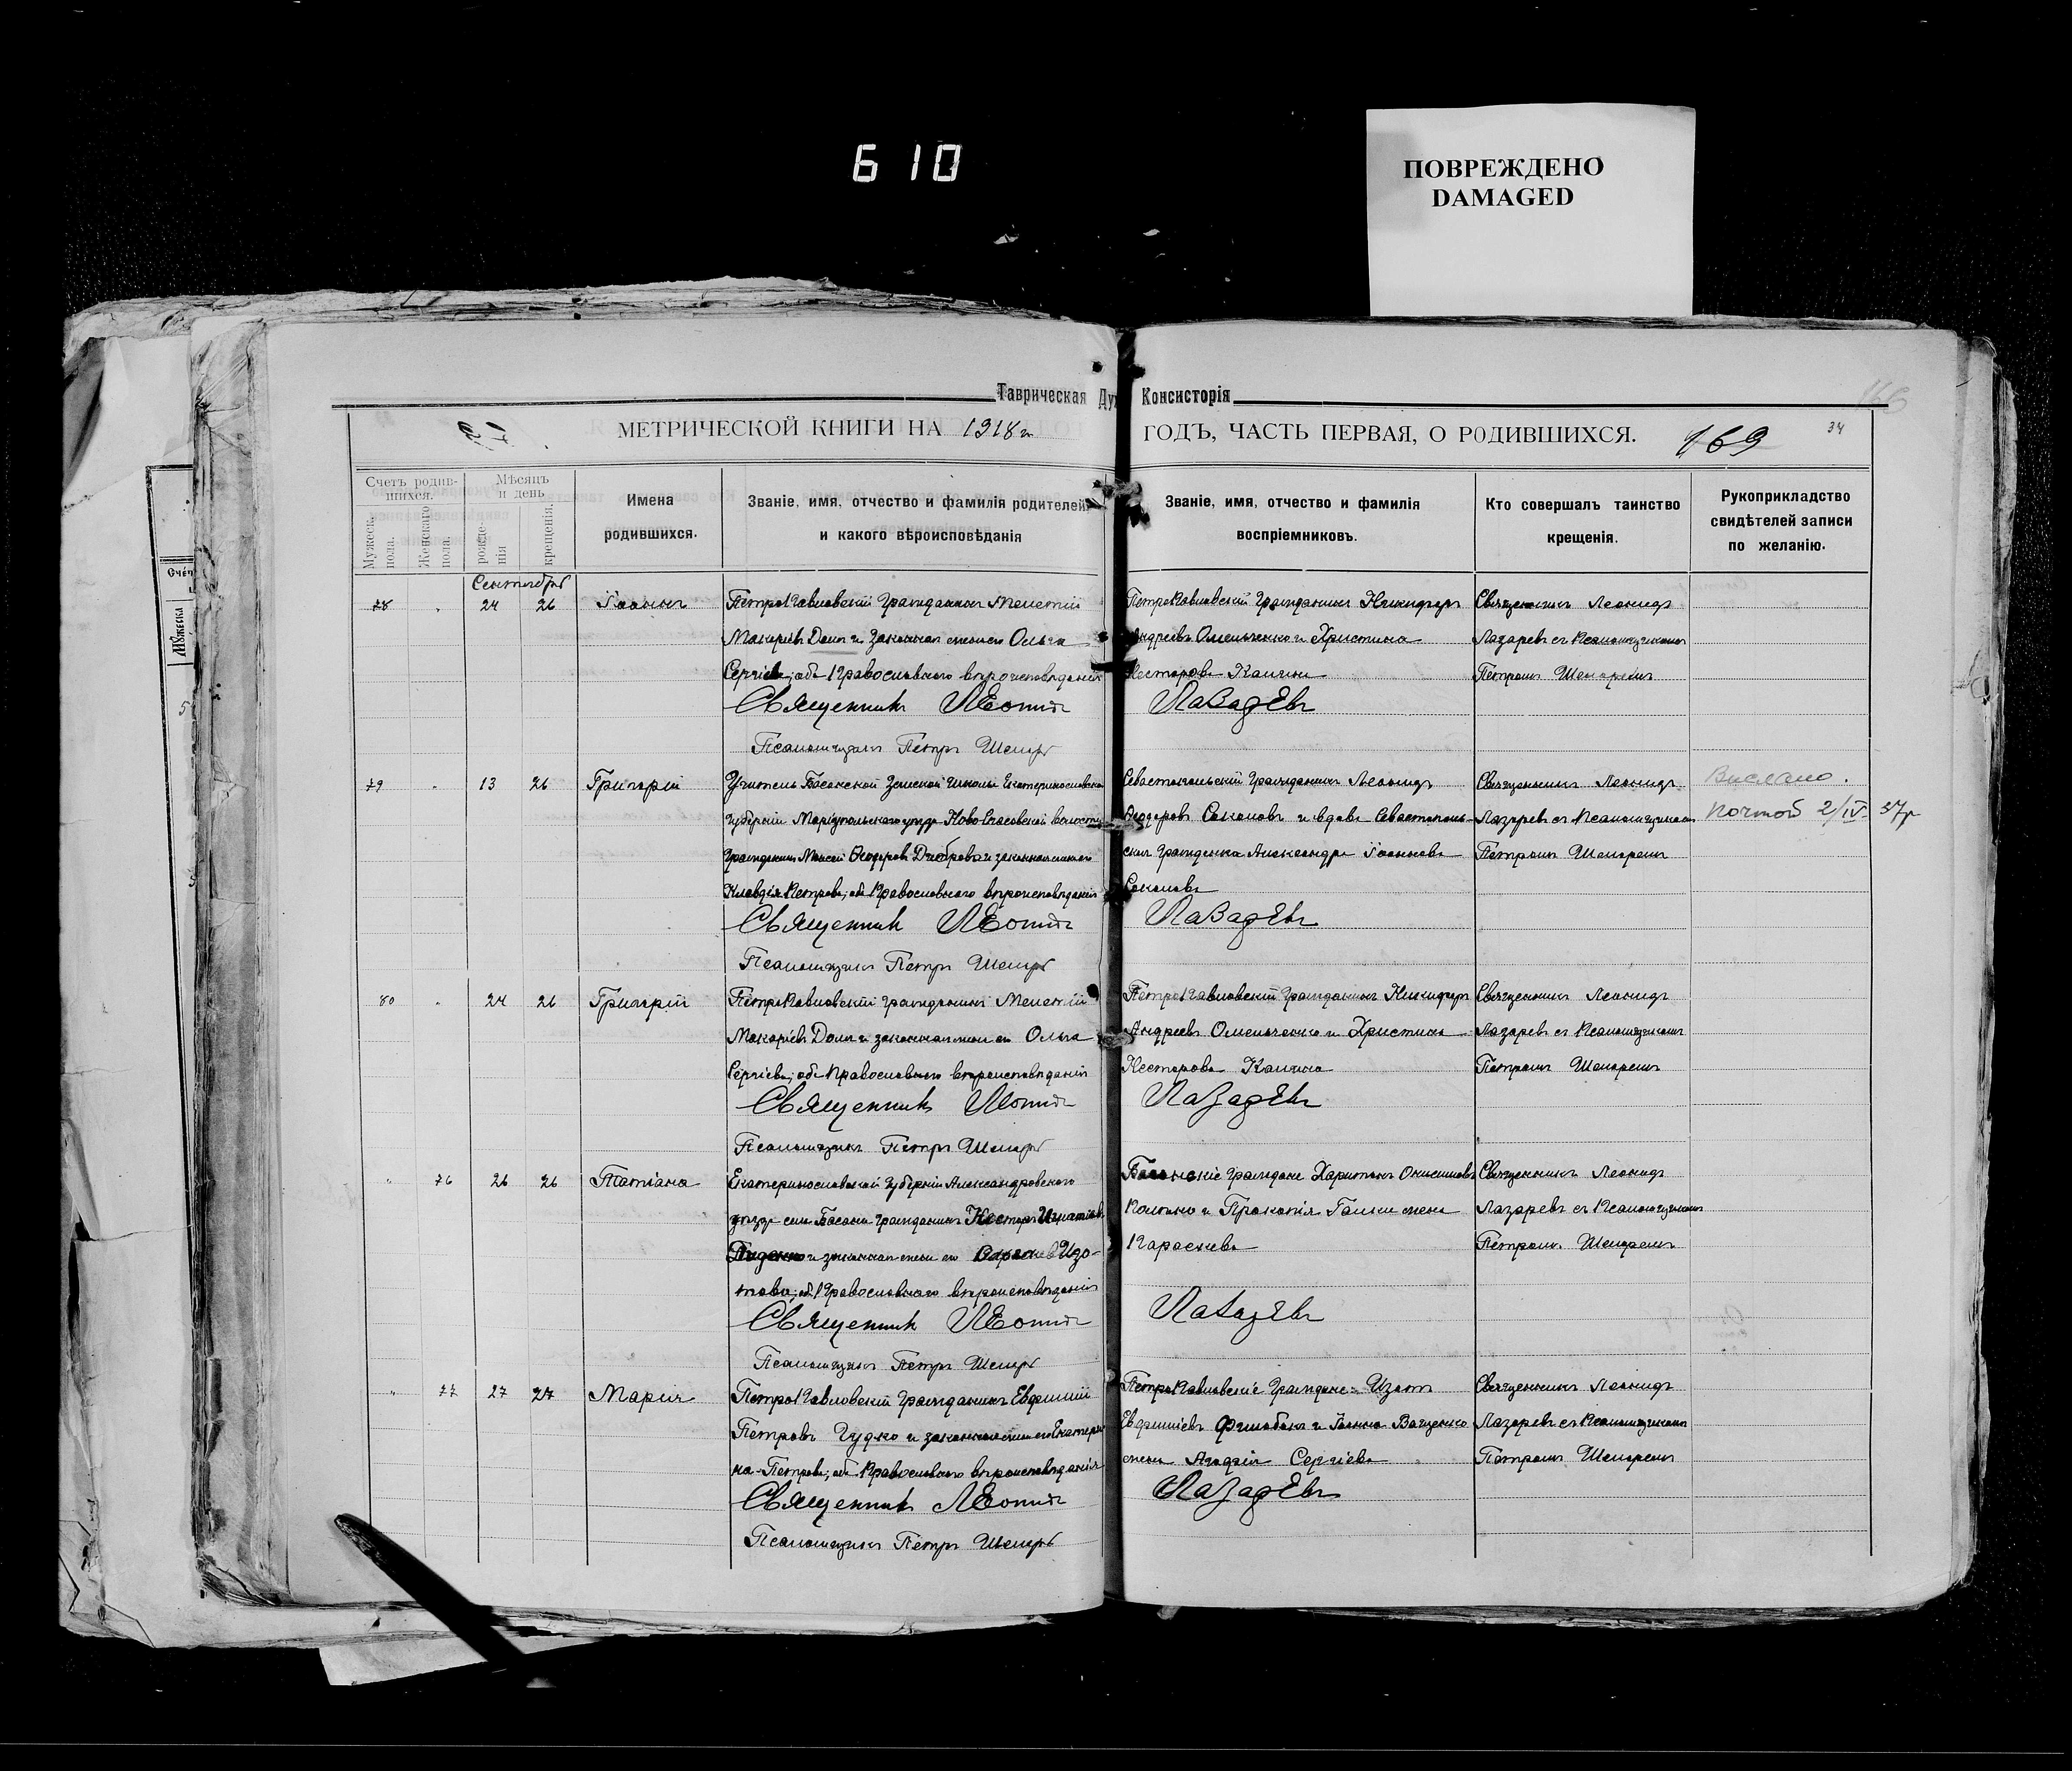 610
ПОВРЕЖДЕНО
DAMAGED
Таврическая Дух Консисторія
МЕТРИЧЕСКОЙ КНИГИ НА 1918 г. ГОДЪ, ЧАСТЬ ПЕРВАЯ, О РОДИВШИХСЯ. 169 34
166
Счетъ родив-
шихся.
Мужеск. пола.
Женскаго пола.
Мѣсяцъ
и день
рожде-
нія
крещенія.
Имена
родившихся.
Званіе, имя, отчество и фамилія родителей,
и какого вѣроисповѣданія
Званіе, имя, отчество и фамилія
воспріемниковъ.
Кто совершалъ таинство
крещенія.
Рукоприкладство
свидѣтелей записи
по желанію.
Сентябрь
78 " 24 26 Іоаннъ
ПетроПавловскій Гражданинъ Мелетій
Макаріевъ Доля и законная жена его Ольга
Сергіева, оба Православнаго вѣроисповѣданія
Священникъ Леонидъ Лазаревъ
Псаломщикъ Петръ
ПетроПавловскій Гражданинъ Никифоръ
Андреевъ Омельченко и Христина
Несторова
Священникъ Леонидъ
Лазаревъ съ Псаломщикомъ
Петромъ
79 " 13 26 Григорій
Учитель Басанской Земской Школы Екатеринославской
Губерніи Маріупольскаго уѣзда Ново Спасовской волости
Гражданинъ Моисей Ѳеодоровъ и законная жена его
Клавдія Петрова, оба Православнаго вѣроисповѣданія
Священникъ Леонидъ Лазаревъ
Псаломщикъ Петръ
Севастопольскій Гражданинъ Леонидъ
Ѳеодоровъ Соколовъ и вдова Севастополь-
ская гражданка Александра Іоаннова
Соколова
Священникъ Леонидъ
Лазаревъ съ Псаломщикомъ
Петромъ
Выслано.
Почтой 2/IV 37 г
80 " 24 26 Григорій
ПетроПавловскій гражданинъ Мелетій
Макаріевъ Доля и законная жена его Ольга
Сергіева, оба Православнаго вѣроисповѣданія
Священникъ Леонидъ Лазаревъ
Псаломщикъ Петръ
ПетроПавловскій Гражданинъ Никифоръ
Андреевъ Омельченко и Христина
Несторова
Священникъ Леонидъ
Лазаревъ съ Псаломщикомъ
Петромъ
" 76 26 26 Татіана
Екатеринославской Губерніи Александровского
уѣзда села Басани гражданинъ Несторъ Игнатіевъ
и законная жена его Изо-
това, об. Православнаго вѣроисповѣданія
Священникъ Леонидъ Лазаревъ
Псаломщикъ Петръ
Басанскіе Граждане Харитонъ Онисимовъ
и Прокопія жена
Священникъ Леонидъ
Лазаревъ съ Псаломщикомъ
Петромъ
" 77 27 27 Марія
ПетроПавловскій Гражданинъ Евфимій
Петровъ Гудко и законная жена его Екатери-
на Петрова, об. Православнаго вѣроисповѣданія
Священникъ Леонидъ Лазаревъ
Псаломщикъ Петръ
ПетроПавловскіе Граждане: Изотъ
Евфиміевъ и Іоанна Ващенко
жена Сергіева
Священникъ Леонидъ
Лазаревъ съ Псаломщикомъ
Петромъ